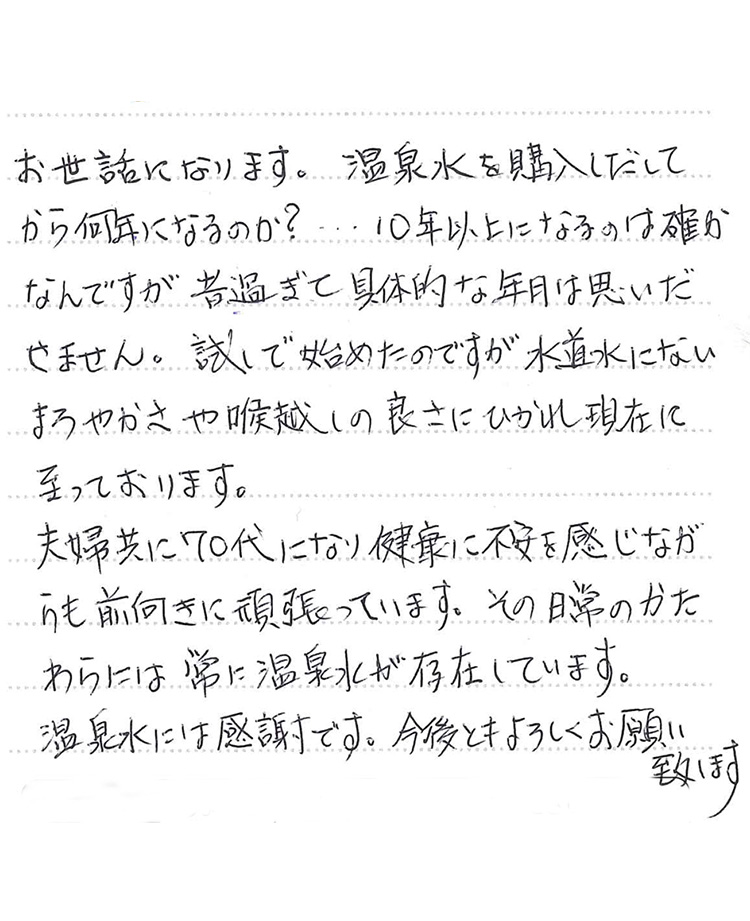 お世話になります。温泉水を購入しだして
から何年になるのか?…10年以上になるのは確か
なんですが昔過ぎて具体的な年月は思いだ
せません。試しで始めたのですが水道水にない
まろやかさや喉越しの良さにひかれ現在に
至っております。
夫婦共に70代になり健康に不安を感じなが
らも前向きに頑張っています。その日常のかた
わらには常に温泉水が存在しています。
温泉水には感謝です。今後ともよろしくお願い
致します